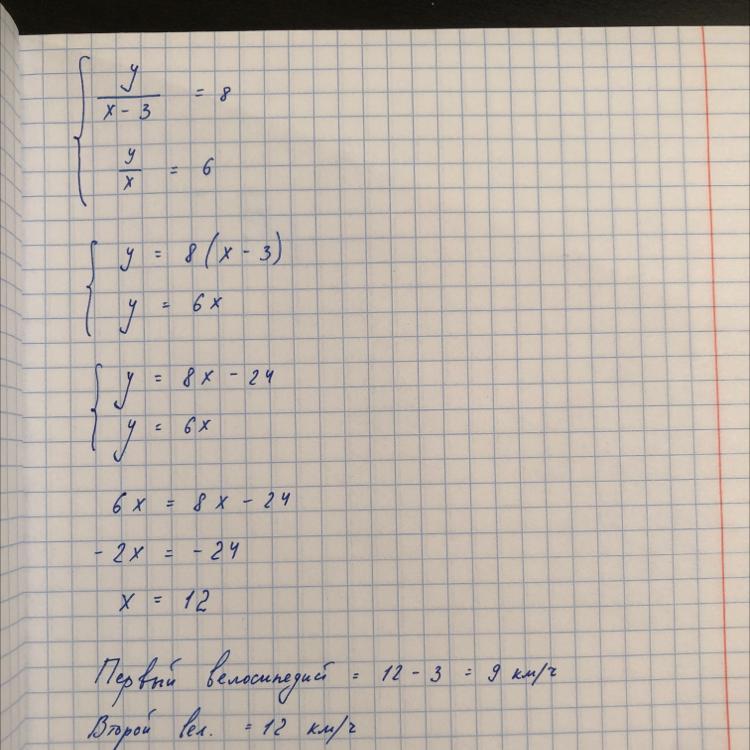 y/(x - 3) = 8
y/x = 6
y = 8(x - 3)
y = 6x
y = 8x - 24
y = 6x
6x = 8x - 24
- 2x = - 24
x = 12
Первый велосипедист = 12 - 3 = 9 км/ч
Второй вел. = 12 км/ч